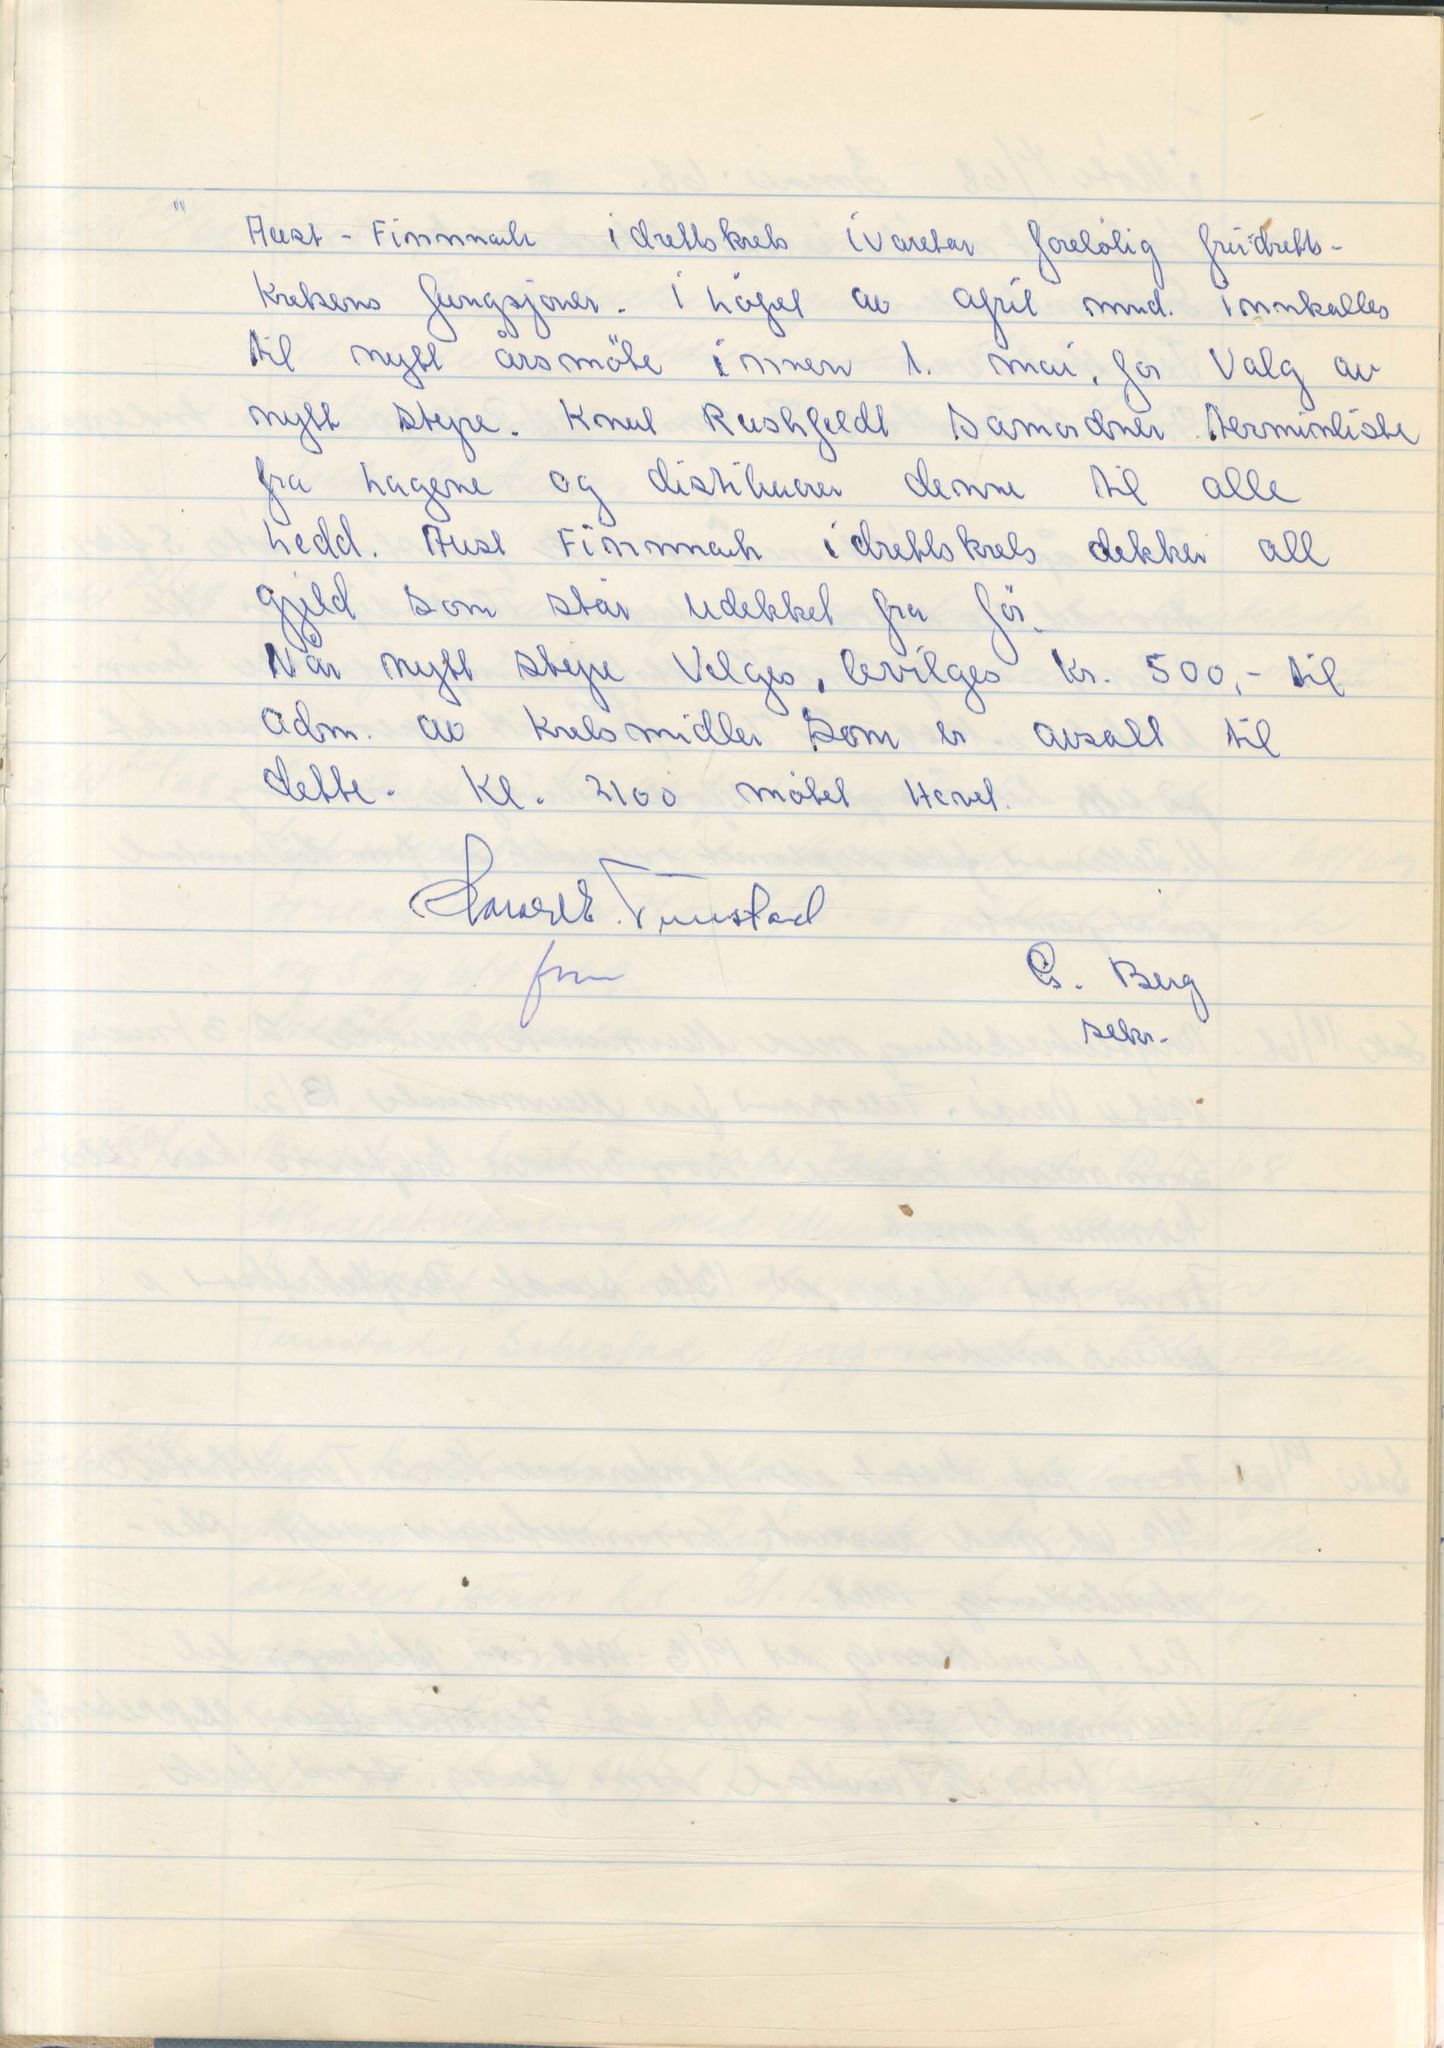 " Aust-Finnmark idrettskrets ivaretar foreløbig friidretts-
kretsens fungsjoner. i løpet av april mnd. innkalles
til nytt årsmöte innen 1. mai, for valg av
nytt styre. Knut Rushfeldt samordner terminliste
fra lagene og distribuerer denne til alle
ledd. Aust Finnmark idrettskrets dekker all
gjeld som står udekket fra för.
Når nytt styre velges, bevilges kr. 500,- til
adm. av kretsmidler som er avsatt til
dette. Kl. 2100 mötet Hevet.
Tunstad
fm
G. Berg
sekr.